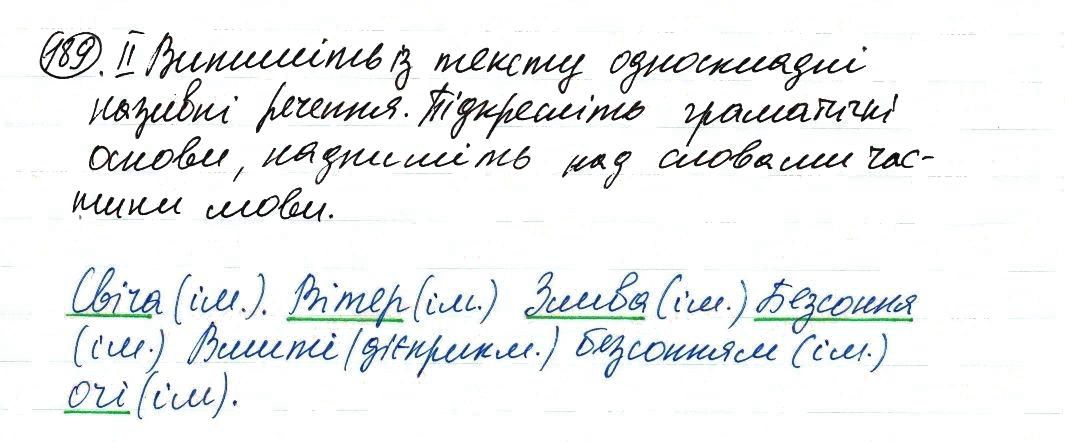 189. II Випишіть із тексту односкладні
називні речення. Підкресліть граматичні
основи, надпишіть над словами час-
тини мови.
Свіча (ім.). Вітер (ім.) Злива (ім.) Безсоння
(ім.) Вмиті (дієприкм.) безсонням (ім.)
очі (ім).